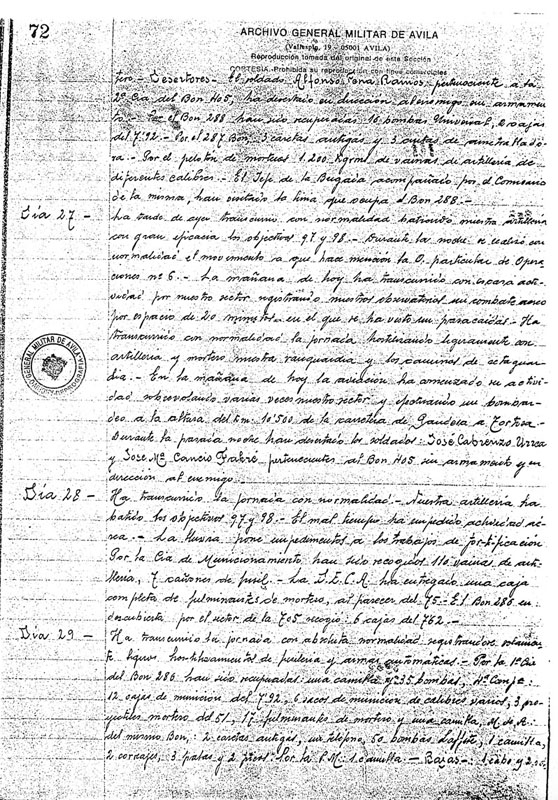 72
ARCHIVO GENERAL MILITAR DE AVILA
(Vallespin, 19 - 05001 AVILA)
Reproducción tomada del original de esta Sección
CORTESIA - Prohibida su reproducción con fines comerciales
tero.- Desertores.- El soldado, Alfonso Pena Ramos, perteneciente a la
2ª Cia del Bon 405, ha desertado en dirección al enemigo sin armamen
to.- Por el Bon 288 han sido recuperadas 10 bombas Universal, 2 cajas
del 7'92.- Por el 287 Bon, 3 caretas antigas y 3 cintas de ametrallado
ra.- Por el pelotón de morteros 1.200 Kgrms de vainas de artilleria de
diferentes calibres.- El Jefe de la Brigada acompañado por el Comisario
de la misma, han visitado la linea que ocupa el Bon 288.-
Dia 27 -
La tarde de ayer transcurrio con normalidad batiendo nuestra artilleria
con gran eficacia los objetivos 97 y 98.- Durante la noche se realizó con
normalidad el movimiento a que hace mención la O. particular de Opera
ciones nº 6.- La mañana de hoy ha transcurrido con escasa acti-
vidad por nuestro sector registrando nuestros observatorios un combate aereo
por espacio de 20 minutos en el que se ha visto un paracaidas.- Ha
transcurrido con normalidad la jornada hostilizando ligeramente con
artilleria y mortero nuestra vanguardia y los caminos de retaguar
dia.- En la mañana de hoy la aviación ha comenzado su activi
dad sobrevolando varias veces nuestro sector y efectuando un bombar-
deo a la altura del km. 10'500 de la carretera de Gandesa a Tortosa.-
Durante la pasada noche han desertado los soldados: José Cabrenzo Urrea
y José Mª Cancio Fabré pertenecientes al Bon 405 sin armamento y en
dirección al enemigo.-
Dia 28 -
Ha transcurrido la jornada con normalidad.- Nuestra artilleria ha
batido los objetivos 97 y 98.- El mal tiempo ha impedido actividad aé-
rea.- La lluvia pone impedimentos a los trabajos de fortificación
Por la Cia de Municionamiento han sido recogidos 110 vainas de arti
lleria, 7 cañones de fusil.- La ha entregado una caja
completa de fulminantes de mortero, al parecer del 75.- El Bon 286 en
descubierta por el sector de la 705 recogió: 6 cajas del 7'62.-
Dia 29 -
Ha transcurrido la jornada con absoluta normalidad registrandose solamen
te ligeros hostilizamientos de fusileria y armas automaticas.- Por la 1ª Cia
del Bon 286 han sido recuperadas: una camilla y 35 bombas,
12 cajas de municion del 7'92, 6 sacos de municion de calibres varios, 3 pro
yectiles mortero del 51, 17 fulminantes de mortero y una camilla,
del mismo Bon: 2 caretas antigas, un telefono, 50 bombas Laffite, 1 camilla,
2 correajes, 3 palas y 2 picos. Por la P.M.: 1 camilla.- Bajas.- 1 cabo y 2